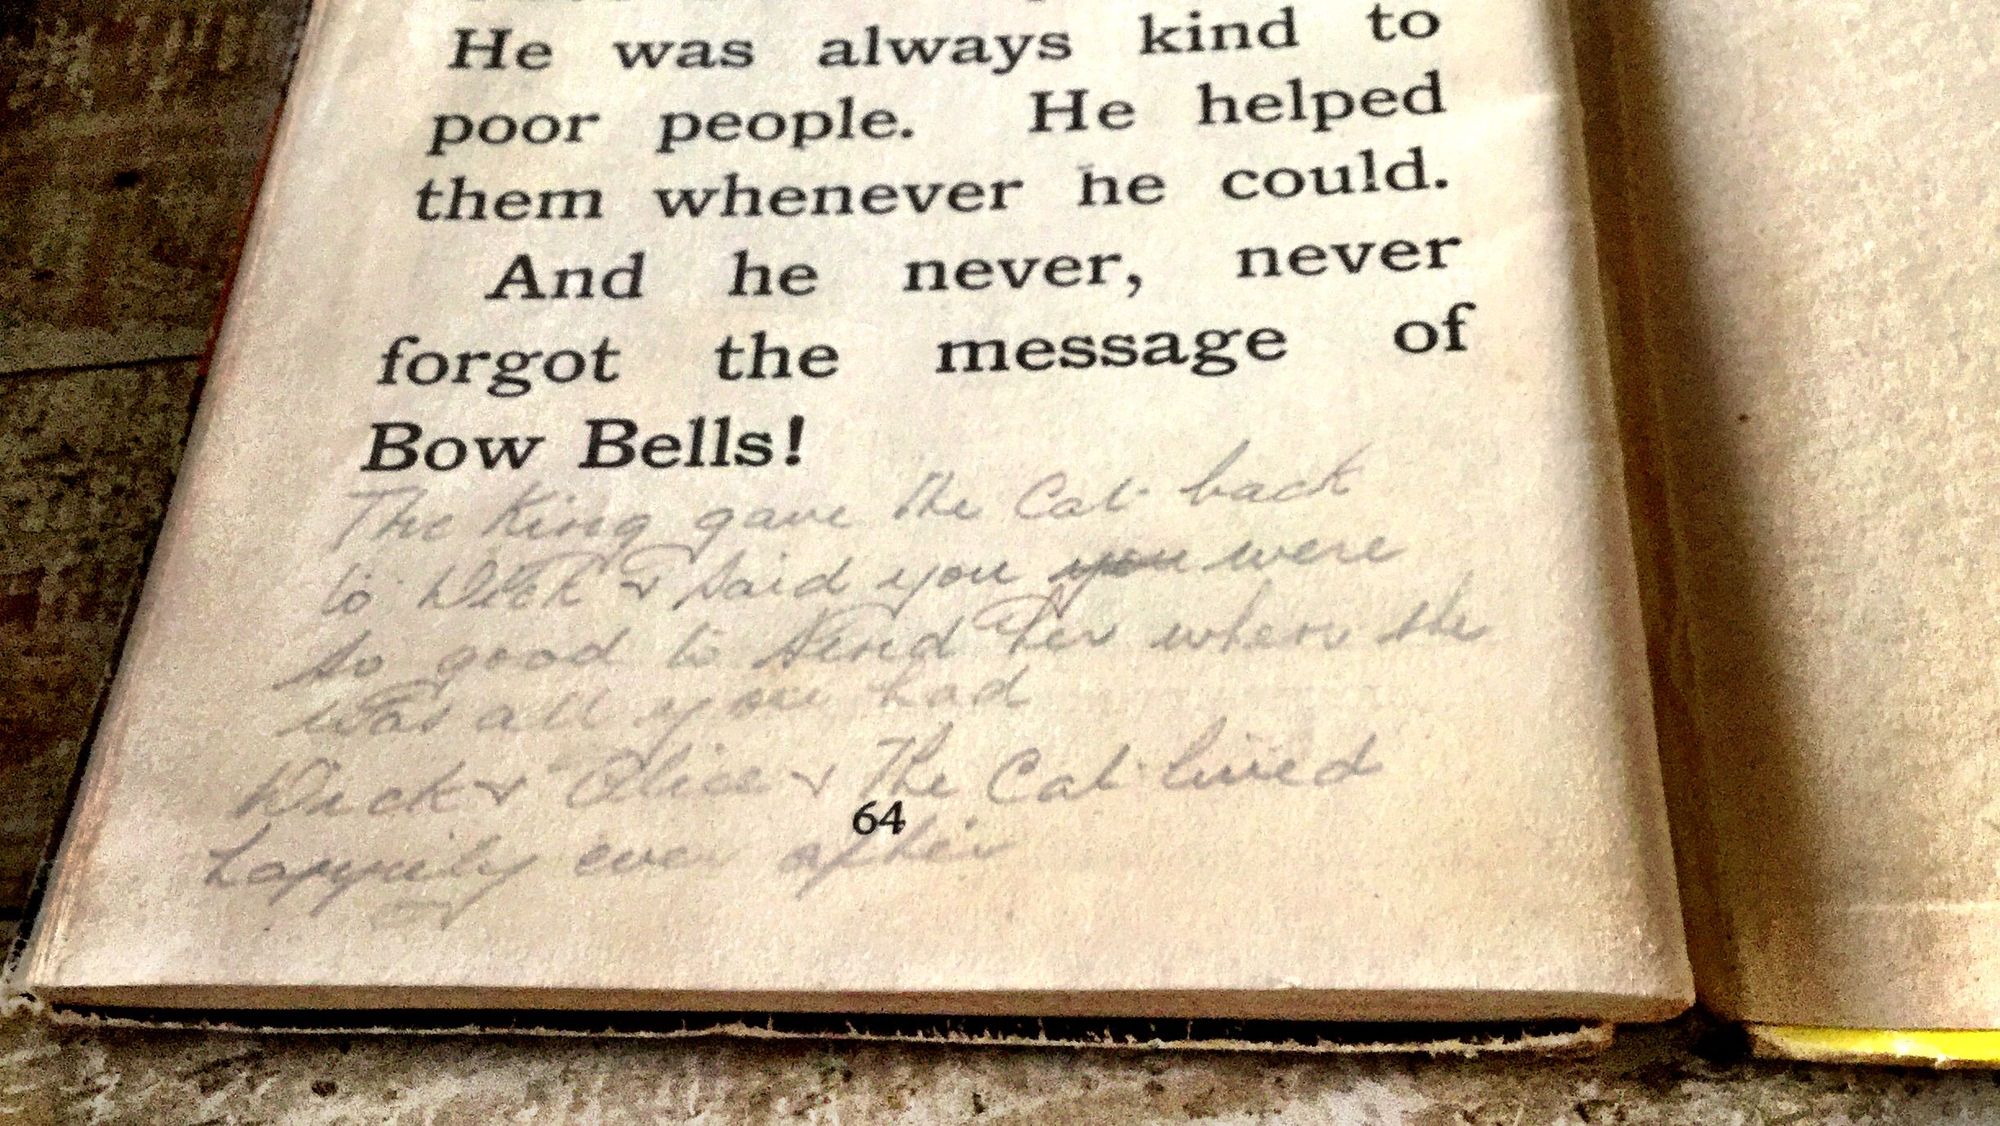 He was always kind to
poor people. He helped
them whenever he could.
And he never, never
forgot the message of
Bow Bells!
The King gave the Cat back
to Dick & said you you were
so good to send her when she
was all you had
Dick & Alice & The Cat lived
64
happily ever after